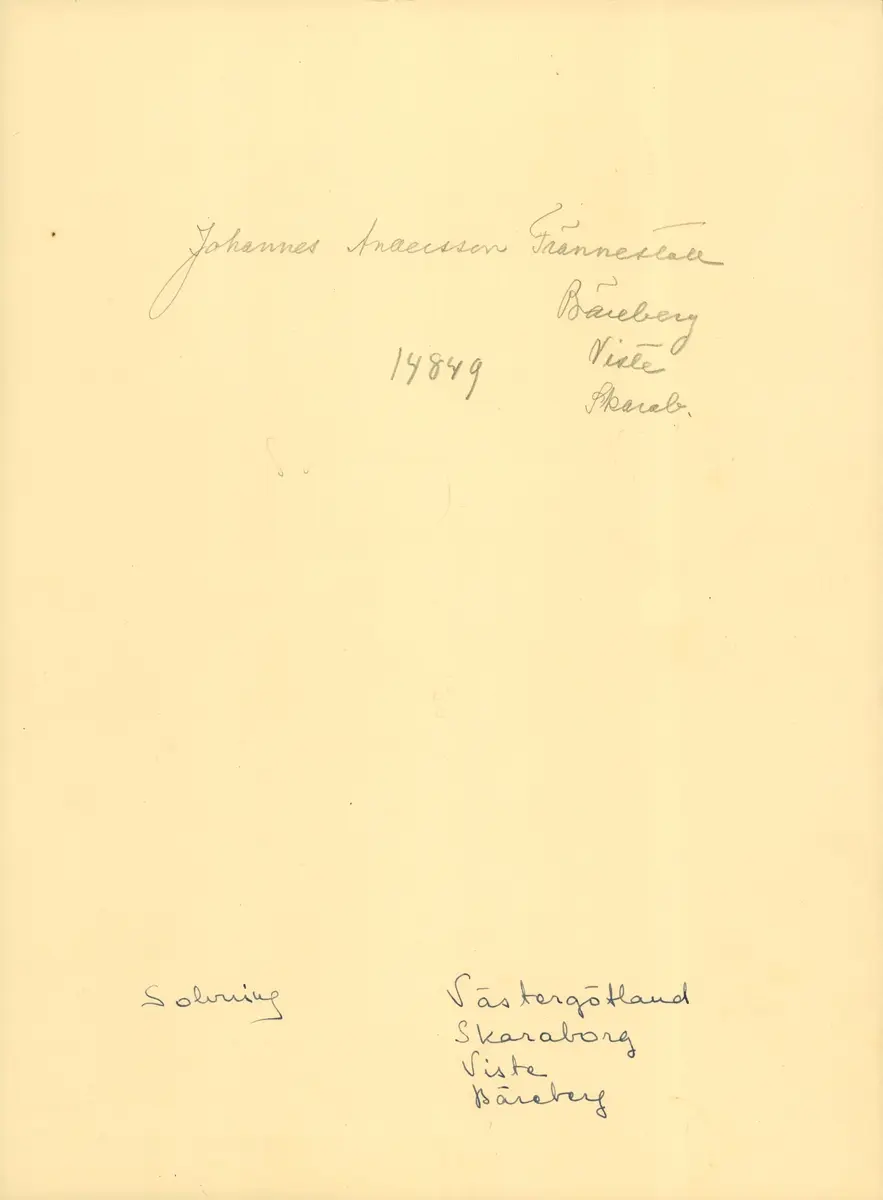 Johannes Andersson Trännestall
Bäreberg
14849 Viste
Skarab.
Solvning Västergötland
Skaraborg
Viste
Bäreberg